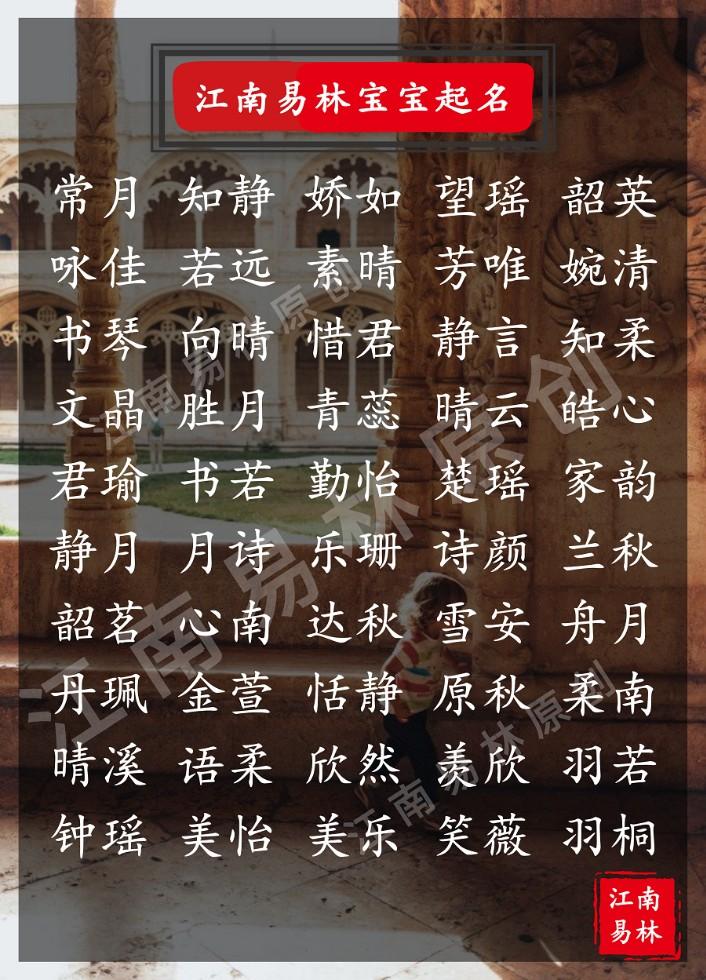 江南易林宝宝起名
常月 知静 娇如 望瑶 韶英
咏佳 若远 素晴 芳唯 婉清
书琴 向晴 惜君 静言 知柔
文晶 胜月 青蕊 晴云 皓心
君瑜 书若 勤怡 楚瑶 家韵
静月 月诗 乐珊 诗颜 兰秋
韶茗 心南 达秋 雪安 舟月
丹珮 金萱 恬静 原秋 柔南
晴溪 语柔 欣然 羡欣 羽若
钟瑶 美怡 美乐 笑薇 羽桐
江南易林原创
江南易林原创
江南易林原创
江南
易林